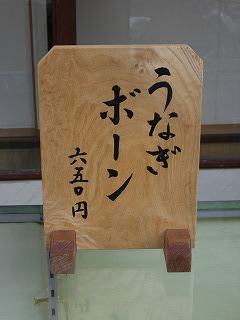 うなぎ
ボーン
六五〇円